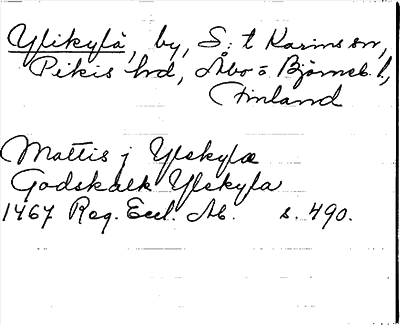 Ylikylä, by, S:t Karins sn,
Pikis hd, Åbo o Björneb. l,
Finland
Mattis j Ylekylæ
Godskalk Ylekyla
1467 Reg. Eccl. Ab. s. 490.